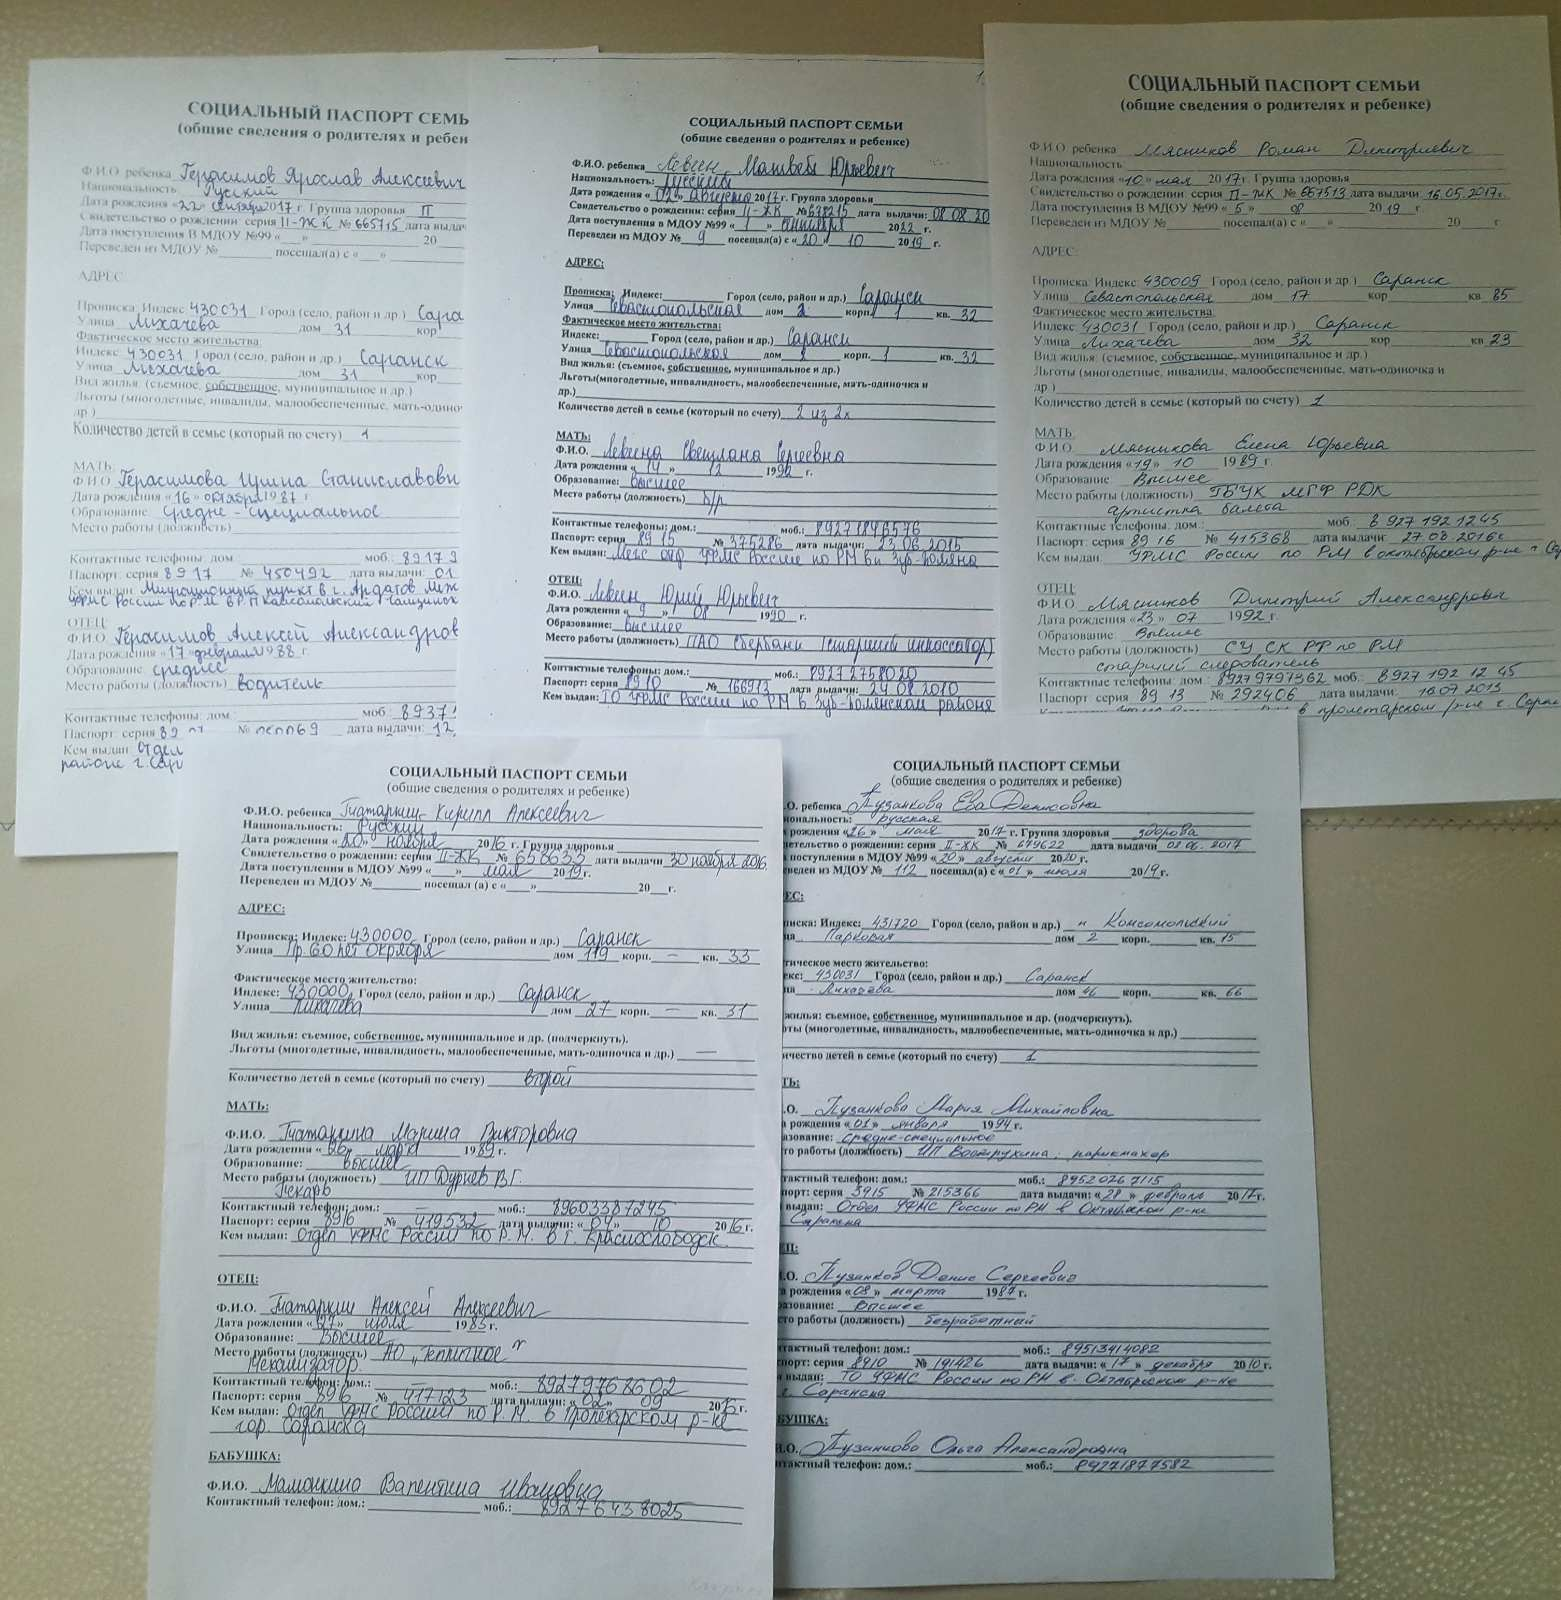 СОЦИАЛЬНЫЙ ПАСПОРТ СЕМЬ
(общие сведения о родителях и ребен
Ф.И.О. ребенка Герасимов Ярослав Алексеевич
Национальность: Русский
Дата рождения «22» сентября 2017 г. Группа здоровья II
Свидетельство о рождении: серия II-ЖК № 665715 дата выдач
Дата поступления В МДОУ №99 «___» ___ 20
Переведен из МДОУ № ___ посещал(а) с «___»
АДРЕС
Прописка: Индекс 430031 Город (село, район и др.) Сара
Улица Лихачева дом 31 кор
Фактическое место жительства:
Индекс 430031 Город (село, район и др.) Саранск
Улица Лихачева дом 31 кор
Вид жилья: (съемное, собственное, муниципальное и др.)
Льготы (многодетные, инвалиды, малообеспеченные, мать-одиноч
др.)
Количество детей в семье (который по счету) 1
МАТЬ:
Ф.И.О. Герасимова Ирина Станиславовн
Дата рождения «16» октября 1987 г
Образование: средне-специальное
Место работы (должность)
Контактные телефоны: дом.: моб.: 89179
Паспорт: серия 8917 № 450492 дата выдачи: 01
Кем выдан: Миграционный пункт в г. Ардатов Меж
УФМС России по Р.М. в Р.П Комсомольский Чамзинск
ОТЕЦ:
Ф.И.О. Герасимов Алексей Александров
Дата рождения «17» февраля 1988 г
Образование: среднее
Место работы (должность) водитель
Контактные телефоны: дом.: моб.: 8937
Паспорт: серия 89 № дата выдачи: 12
Кем выдан: Отдел
районе г. Сар
СОЦИАЛЬНЫЙ ПАСПОРТ СЕМЬИ
(общие сведения о родителях и ребенке)
Ф.И.О. ребенка Левин Матвей Юрьевич
Национальность: русский
Дата рождения «02» августа 2017 г. Группа здоровья
Свидетельство о рождении: серия II-ЖК № 678215 дата выдачи: 08 08 20
Дата поступления в МДОУ №99 «1» сентября 2022 г.
Переведен из МДОУ № 9 посещал(а) с «20» 10 2019 г.
АДРЕС:
Прописка: Индекс: Город (село, район и др.) Саранск
Улица Севастопольская дом 2 корп. 1 кв. 32
Фактическое место жительства:
Индекс: Город (село, район и др.) Саранск
Улица Севастопольская дом 2 корп. 1 кв. 32
Вид жилья: (съемное, собственное, муниципальное и др.)
Льготы(многодетные, инвалидность, малообеспеченные, мать-одиночка и
др.)
Количество детей в семье (который по счету) 2 из 2х
МАТЬ:
Ф.И.О. Левина Светлана Сергеевна
Дата рождения «14» 12 1992 г.
Образование: высшее
Место работы (должность) б/р
Контактные телефоны: дом.: моб.: 89271846576
Паспорт: серия 89 15 № 375286 дата выдачи: 23.06.2015
Кем выдан: УФМС России по РМ в Зуб-Поляна
ОТЕЦ:
Ф.И.О. Левин Юрий Юрьевич
Дата рождения «9» 08 1990 г.
Образование: высшее
Место работы (должность) ПАО Сбербанк (старший инкассатор)
Контактные телефоны: дом.: моб.: 89272758020
Паспорт: серия 8910 № 166913 дата выдачи: 24.08.2010
Кем выдан: ТО УФМС России по РМ в Зуб-Полянском районе
СОЦИАЛЬНЫЙ ПАСПОРТ СЕМЬИ
(общие сведения о родителях и ребенке)
Ф.И.О. ребенка Мясников Роман Дмитриевич
Национальность
Дата рождения «10» мая 2017 г. Группа здоровья
Свидетельство о рождении: серия II-ЖК № 667513 дата выдачи: 16.05.2017г.
Дата поступления В МДОУ №99 «5» 08 2019 г
Переведен из МДОУ № посещал(а) с «___» 20 г
АДРЕС:
Прописка: Индекс 430009 Город (село, район и др.) Саранск
Улица Севастопольская дом 17 кор кв. 85
Фактическое место жительства:
Индекс 430031 Город (село, район и др.) Саранск
Улица Лихачева дом 32 кор кв 23
Вид жилья: (съемные, собственное, муниципальное и др.)
Льготы (многодетные, инвалиды, малообеспеченные, мать-одиночка и
др.)
Количество детей в семье (который по счету) 1
МАТЬ:
Ф.И.О. Мясникова Елена Юрьевна
Дата рождения «19» 10 1989 г
Образование Высшее
Место работы (должность) ГБУК МГФ РДК
артистка балета
Контактные телефоны: дом.: моб.: 8 927 192 12 45
Паспорт: серия 89 16 № 415368 дата выдачи: 27.08.2016г
Кем выдан: УФМС России по РМ в октябрьском р-не г. Сар
ОТЕЦ:
Ф.И.О. Мясников Дмитрий Александрович
Дата рождения «23» 07 1992 г.
Образование: Высшее
Место работы (должность) СУ СК РФ по РМ
старший следователь
Контактные телефоны: дом.: 89279797362 моб.: 8 927 192 12 45
Паспорт: серия 89 13 № 292406 дата выдачи: 16.07 2013
в пролетарском р-не г. Саран
СОЦИАЛЬНЫЙ ПАСПОРТ СЕМЬИ
(общие сведения о родителях и ребенке)
Ф.И.О. ребенка Татаркин Кирилл Алексеевич
Национальность: Русский
Дата рождения «20» ноября 2016 г. Группа здоровья
Свидетельство о рождении: серия II-ЖК № 658633 дата выдачи 30 ноября 2016.
Дата поступления в МДОУ №99 «___» мая 2019г.
Переведен из МДОУ № посещал (а) с «___» 20__г.
АДРЕС:
Прописка: Индекс: 430000 Город (село, район и др.) Саранск
Улица Пр 60 лет Октября дом 119 корп. — кв. 33
Фактическое место жительство:
Индекс: 430000 Город (село, район и др.) Саранск
Улица Лихачева дом 27 корп. — кв. 31
Вид жилья: съемное, собственное, муниципальное и др. (подчеркнуть).
Льготы (многодетные, инвалидность, малообеспеченные, мать-одиночка и др.) —
Количество детей в семье (который по счету) второй
МАТЬ:
Ф.И.О. Татаркина Марина Викторовна
Дата рождения «26» марта 1989г.
Образование: высшее
Место работы (должность) ИП Дурнев В.Г.
Пекарь
Контактный телефон: дом.: — моб.: 89603387245
Паспорт: серия 8916 № 419532 дата выдачи: «04» 10 2016г.
Кем выдан: Отдел УФМС России по Р.М. в г. Краснослободск
ОТЕЦ:
Ф.И.О. Татаркин Алексей Алексеевич
Дата рождения «27» июля 1985г.
Образование: Высшее
Место работы (должность) АО "Тепличное"
Механизатор.
Контактный телефон: дом.: — моб.: 89279768602
Паспорт: серия 8916 № 417123 дата выдачи: «02» 09 2016г.
Кем выдан: Отдел УФМС России по Р.М. в Пролетарском р-не
гор. Саранска
БАБУШКА:
Ф.И.О. Мамонкина Валентина Ивановна
Контактный телефон: дом.: моб.: 89276438025
СОЦИАЛЬНЫЙ ПАСПОРТ СЕМЬИ
(общие сведения о родителях и ребенке)
.О. ребенка Пузанкова Ева Денисовна
ональность: русская
рождения «26» мая 2017 г. Группа здоровья здорова
детельство о рождении: серия II-ЖК № 679622 дата выдачи 08 06. 2017
поступления в МДОУ №99 «20» августа 2020г.
веден из МДОУ № 112 посещал(а) с «01» июля 2019г.
ЕС:
писка: Индекс: 431720 Город (село, район и др.) п Комсомольский
ца Парковая дом 2 корп. кв. 15
тическое место жительство:
екс: 430031 Город (село, район и др.) Саранск
ца Лихачёва дом 46 корп. кв. 66
жилья: съемное, собственное, муниципальное и др. (подчеркнуть).
оты (многодетные, инвалидность, малообеспеченные, мать-одиночка и др.)
ичество детей в семье (который по счету) 1
ТЬ:
.О. Пузанкова Мария Михайловна
а рождения «01» января 1994г.
азование: средне-специальное
то работы (должность) ИП Вострухина, парикмахер
тактный телефон: дом.: моб.: 89520267115
порт: серия 8915 № 215366 дата выдачи: «28» февраль 2017г.
выдан: Отдел УФМС России по РМ в Октябрьском р-не
Саранска
ЕЦ:
.О. Пузанков Денис Сергеевич
а рождения «08» марта 1987г.
азование: Высшее
то работы (должность) безработный
тактный телефон: дом.: моб.: 89513414082
порт: серия 8910 № 191426 дата выдачи: «17» декабря 2010г.
выдан: ТО УФМС России по РМ в Октябрьском р-не
г. Саранска
БУШКА:
.О. Пузанкова Ольга Александровна
тактный телефон: дом.: моб.: 89271877582